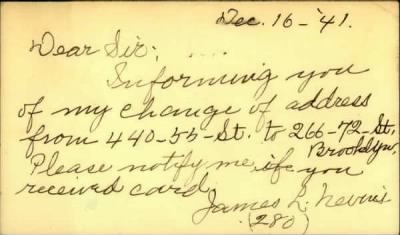 Dec. 16-'41.
Dear Sir:
Informing you
of my change of address
from 440-55-St. to 266-72-St,
Brooklyn.
Please notify me if you
received card.
James L. Nevins
(280)